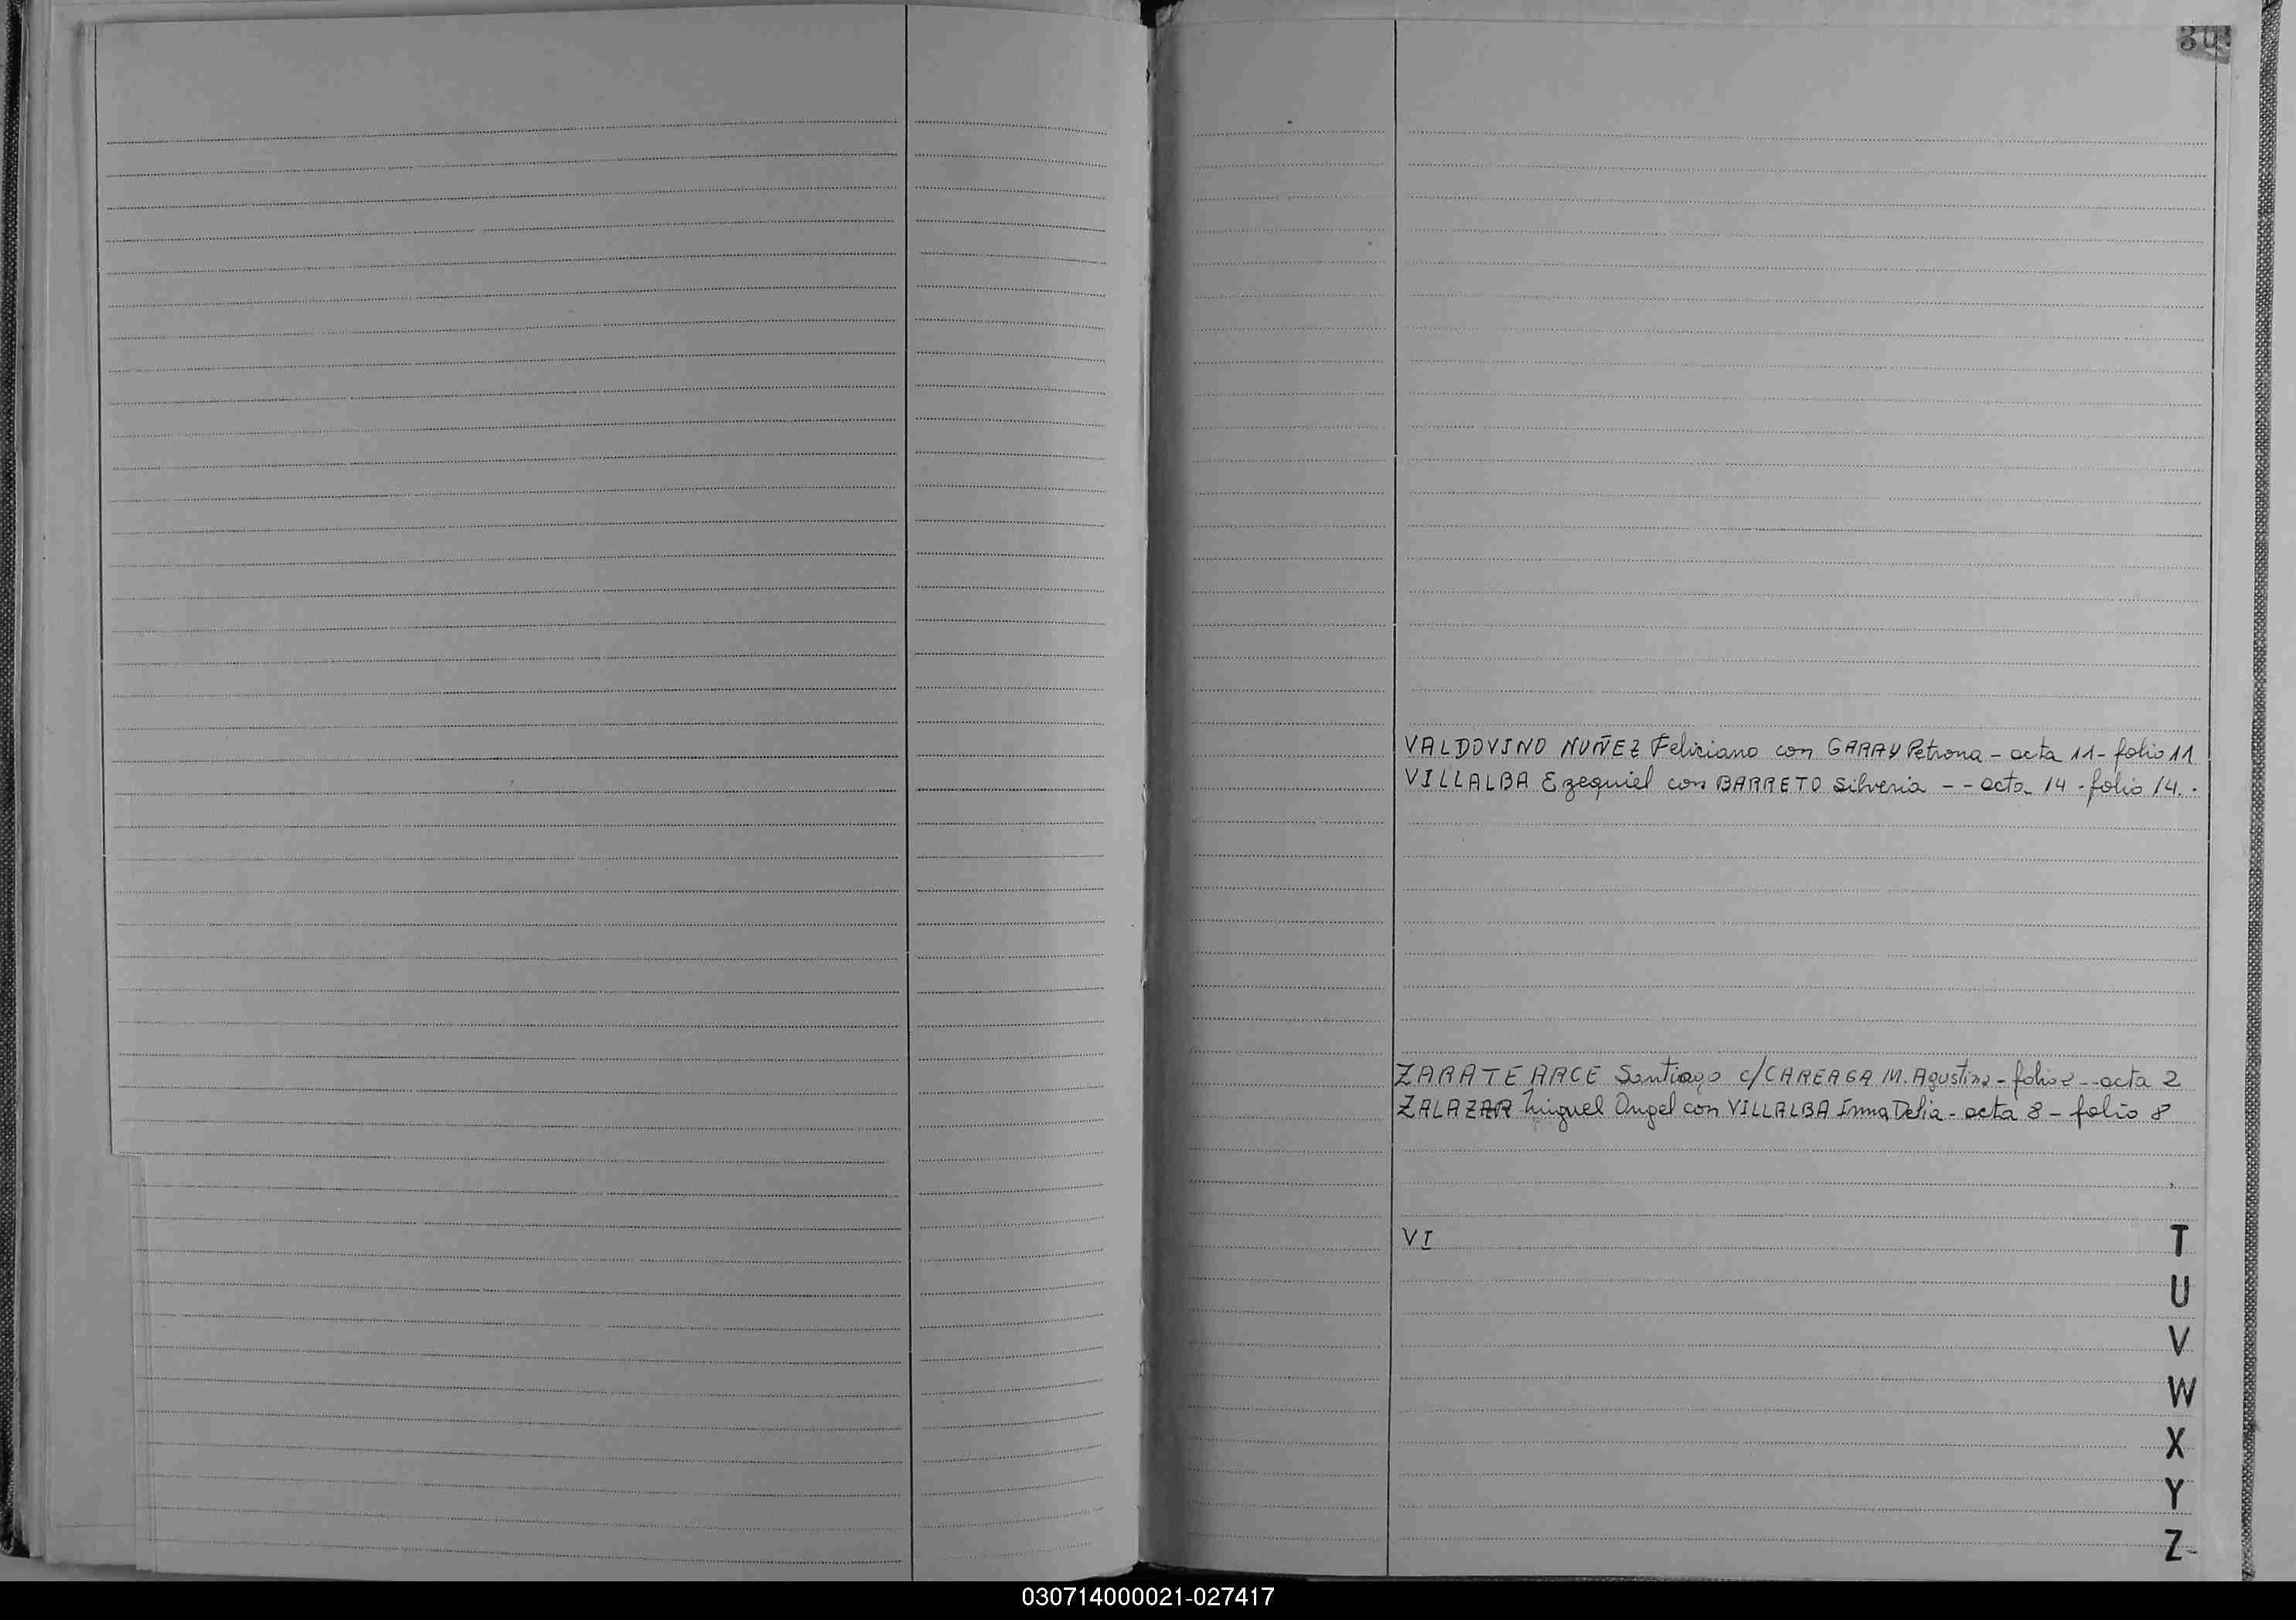 30
VALDOVINO NUÑEZ Feliciano con GARAY Petrona - acta 11 - folio 11
VILLALBA Ezequiel con BARRETO Silveria - - acta 14 - folio 14. -
ZARATE ARCE Santiago c/ CAREAGA M. Agustina - folio 2 - - acta 2
ZALAZAR Miguel Angel con VILLALBA Irma Delia - acta 8 - folio 8
VI
T
U
V
W
X
Y
Z
030714000021-027417